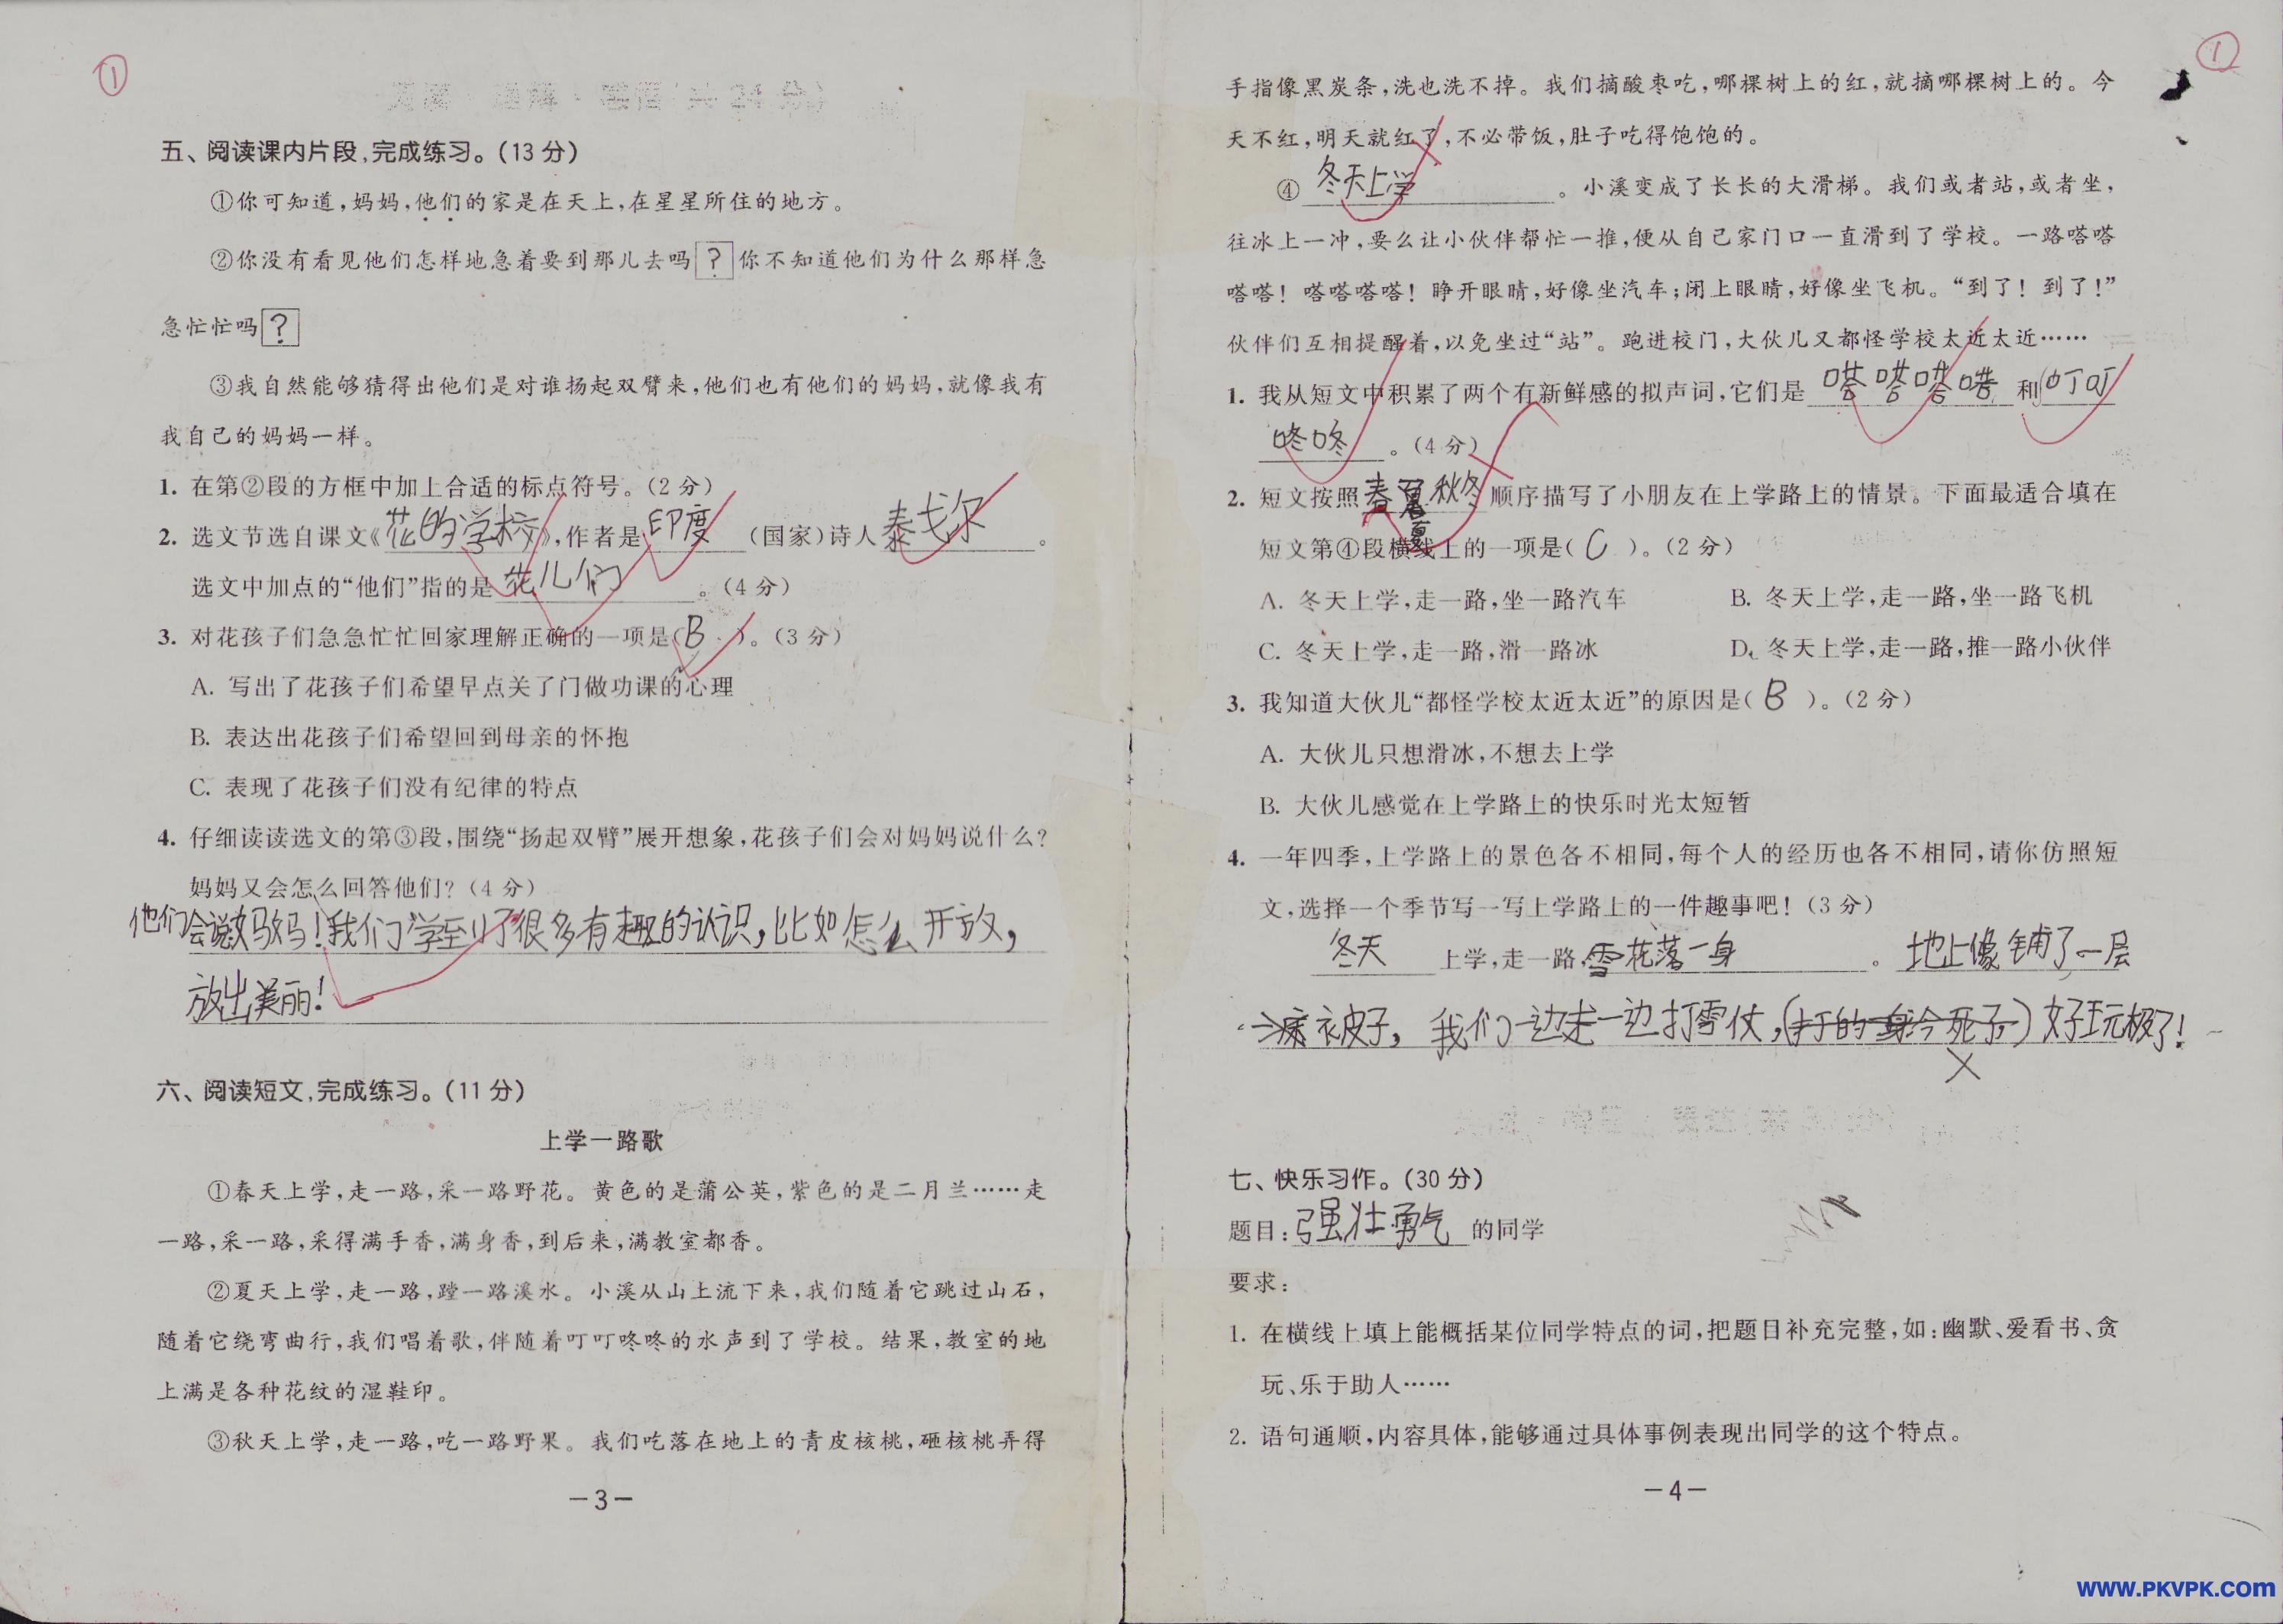 ①
五、阅读课内片段,完成练习。(13 分)
①你可知道,妈妈,他们的家是在天上,在星星所住的地方。
②你没有看见他们怎样地急着要到那儿去吗?你不知道他们为什么那样急
急忙忙吗?
③我自然能够猜得出他们是对谁扬起双臂来,他们也有他们的妈妈,就像我有
我自己的妈妈一样。
1. 在第②段的方框中加上合适的标点符号。(2 分)
2. 选文节选自课文《花的学校》,作者是印度(国家)诗人泰戈尔。
选文中加点的“他们”指的是花儿们。(4 分)
3. 对花孩子们急急忙忙回家理解正确的一项是(B)。(3 分)
A. 写出了花孩子们希望早点关了门做功课的心理
B. 表达出花孩子们希望回到母亲的怀抱
C. 表现了花孩子们没有纪律的特点
4. 仔细读读选文的第③段,围绕“扬起双臂”展开想象,花孩子们会对妈妈说什么?
妈妈又会怎么回答他们?(4 分)
他们会说妈妈!我们学到了很多有趣的认识,比如怎么开放,
放出美丽!
六、阅读短文,完成练习。(11 分)
上学一路歌
①春天上学,走一路,采一路野花。黄色的是蒲公英,紫色的是二月兰……走
一路,采一路,采得满手香,满身香,到后来,满教室都香。
②夏天上学,走一路,蹚一路溪水。小溪从山上流下来,我们随着它跳过山石,
随着它绕弯曲行,我们唱着歌,伴随着叮叮咚咚的水声到了学校。结果,教室的地
上满是各种花纹的湿鞋印。
③秋天上学,走一路,吃一路野果。我们吃落在地上的青皮核桃,砸核桃弄得
－3－
①
手指像黑炭条,洗也洗不掉。我们摘酸枣吃,哪棵树上的红,就摘哪棵树上的。今
天不红,明天就红了,不必带饭,肚子吃得饱饱的。
④冬天上学。小溪变成了长长的大滑梯。我们或者站,或者坐,
往冰上一冲,要么让小伙伴帮忙一推,便从自己家门口一直滑到了学校。一路嗒嗒
嗒嗒!嗒嗒嗒嗒!睁开眼睛,好像坐汽车;闭上眼睛,好像坐飞机。“到了!到了!”
伙伴们互相提醒着,以免坐过“站”。跑进校门,大伙儿又都怪学校太近太近……
1. 我从短文中积累了两个有新鲜感的拟声词,它们是嗒嗒嗒嗒和叮叮
咚咚。(4 分)
2. 短文按照春夏秋冬顺序描写了小朋友在上学路上的情景。下面最适合填在
短文第④段横线上的一项是(C)。(2 分)
A. 冬天上学,走一路,坐一路汽车 B. 冬天上学,走一路,坐一路飞机
C. 冬天上学,走一路,滑一路冰 D. 冬天上学,走一路,推一路小伙伴
3. 我知道大伙儿“都怪学校太近太近”的原因是(B)。(2 分)
A. 大伙儿只想滑冰,不想去上学
B. 大伙儿感觉在上学路上的快乐时光太短暂
4. 一年四季,上学路上的景色各不相同,每个人的经历也各不相同,请你仿照短
文,选择一个季节写一写上学路上的一件趣事吧!(3 分)
冬天上学,走一路,雪花落一身。地上像铺了一层
被子,我们一边走一边打雪仗,好玩极了!
七、快乐习作。(30 分)
题目:强壮勇气的同学
要求:
1. 在横线上填上能概括某位同学特点的词,把题目补充完整,如:幽默、爱看书、贪
玩、乐于助人……
2. 语句通顺,内容具体,能够通过具体事例表现出同学的这个特点。
－4－
www.PKVPK.com